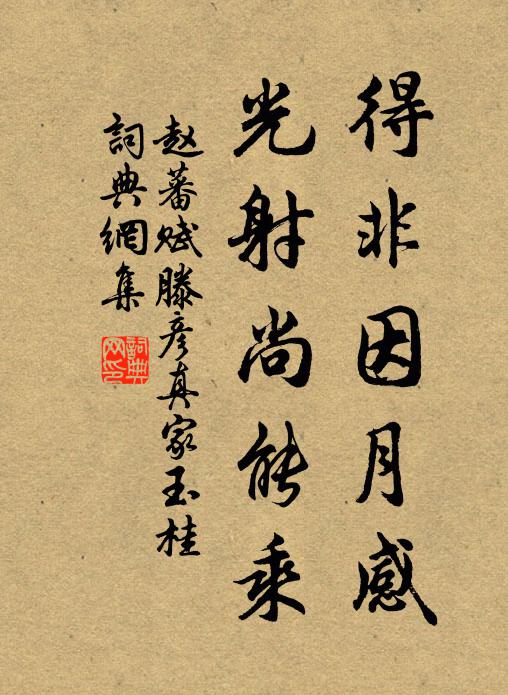 得非因月感
光射尚能乘
赵蕃赋滕彦真家玉桂
詞典網集
詞典網印